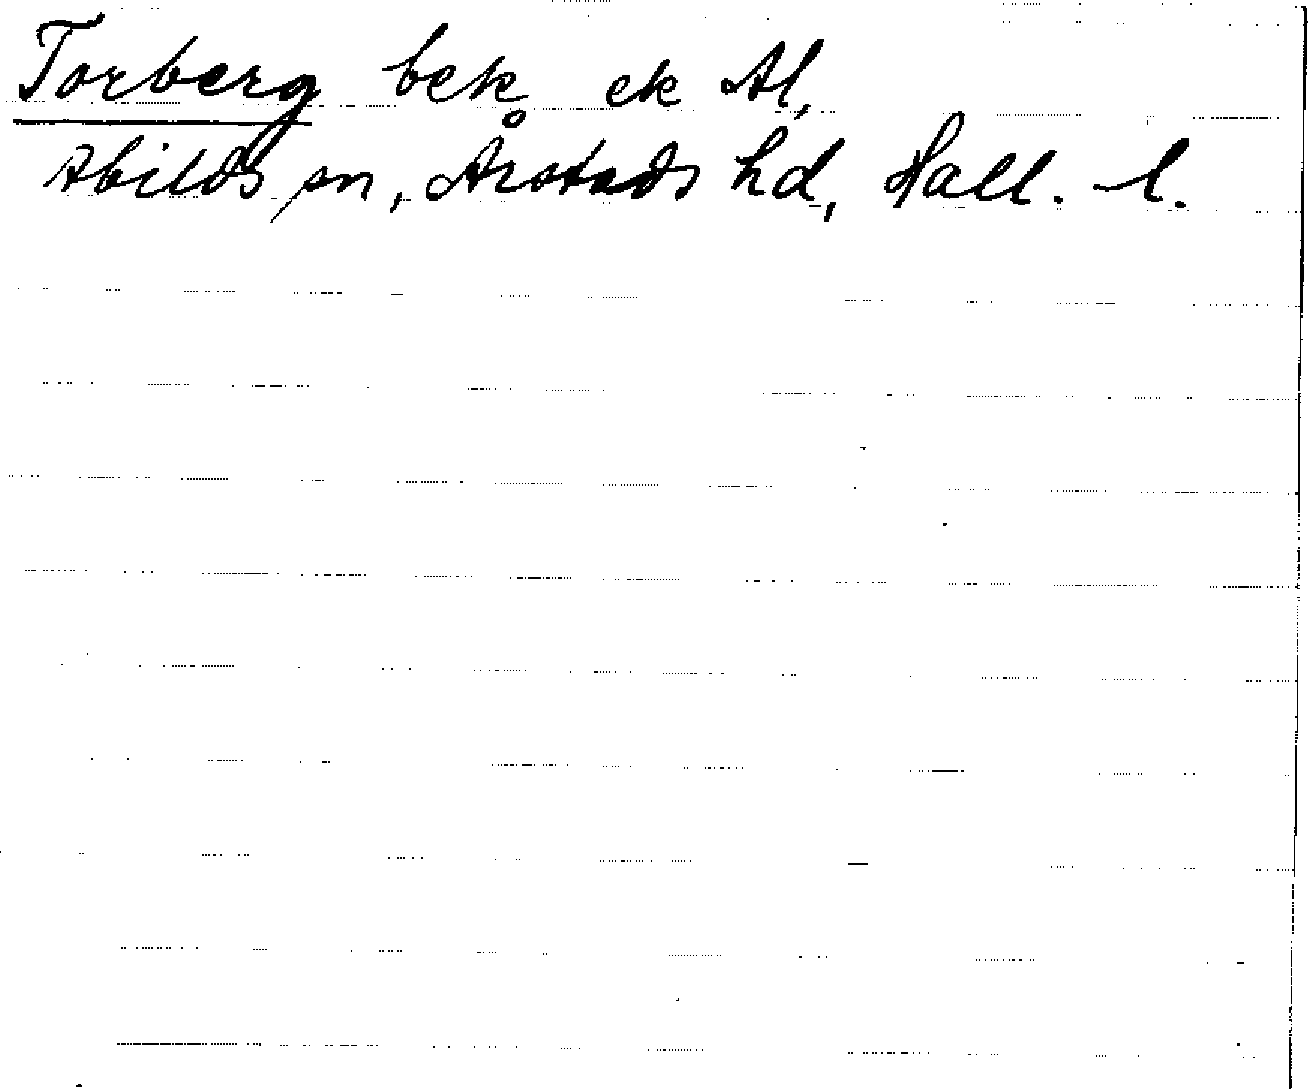 Torberg bek ek Al,
Abilds sn, Årstads hd, Hall. l.